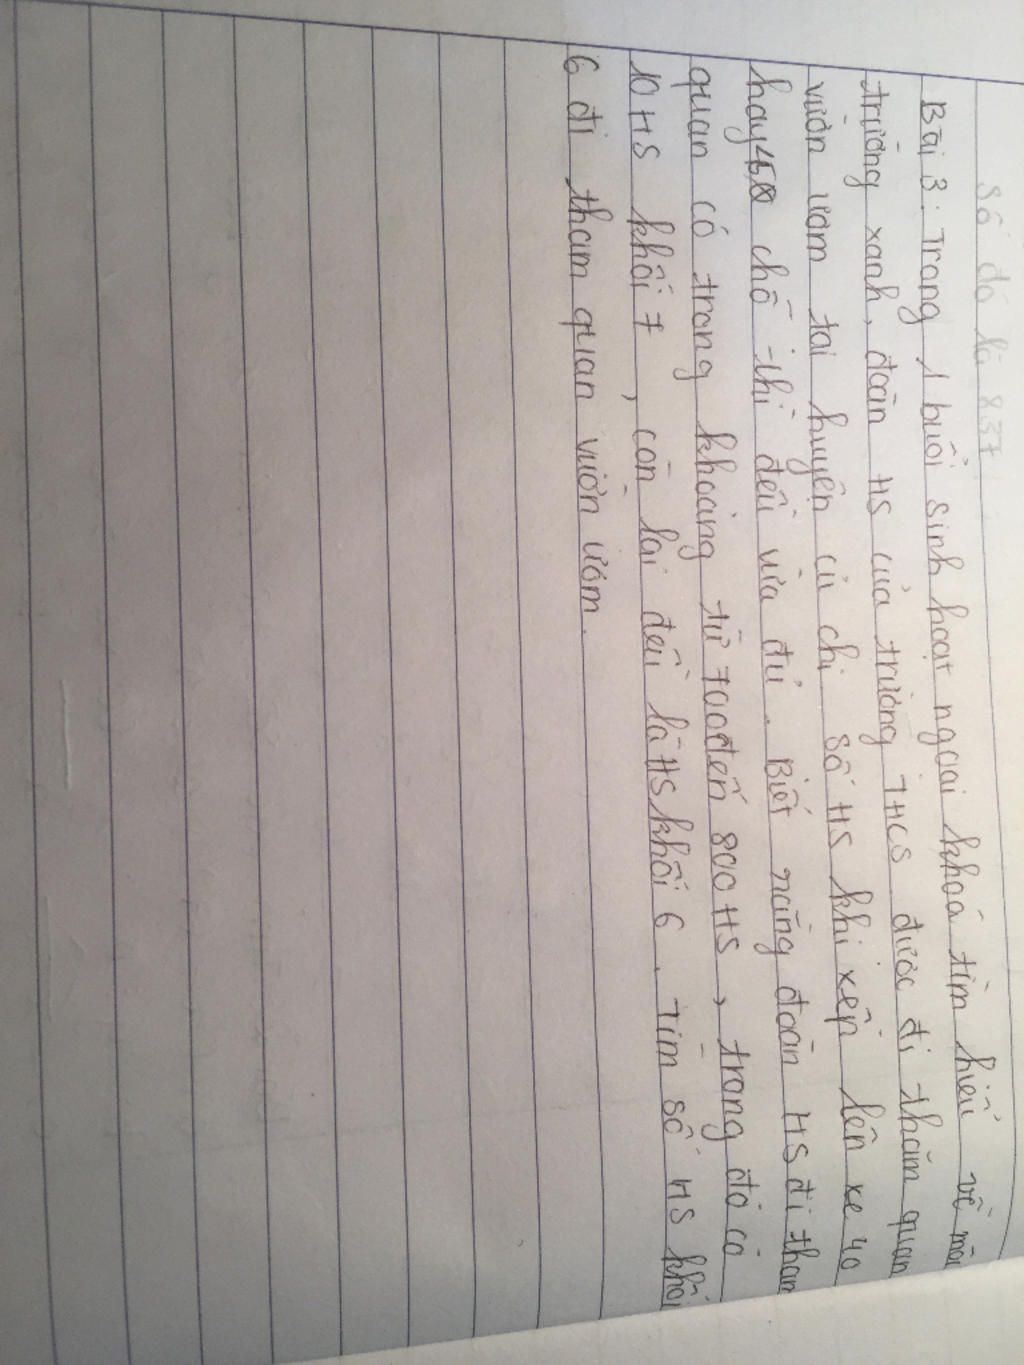 số đó là 837
Bài 3: Trong 1 buổi sinh hoạt ngoại khoá tìm hiểu về môi
trường xanh, đoàn HS của trường THCS được đi thăm quan
vườn ươm tại huyện củ chi số HS khi xếp lên xe 40
hay 45 chỗ thì đều vừa đủ. Biết rằng đoàn HS đi tham
quan có trong khoảng từ 700 đến 800 HS, trong đó có
10 HS khối 7, còn lại đều là HS khối 6. Tìm số HS khối
6 đi tham quan vườn ươm.